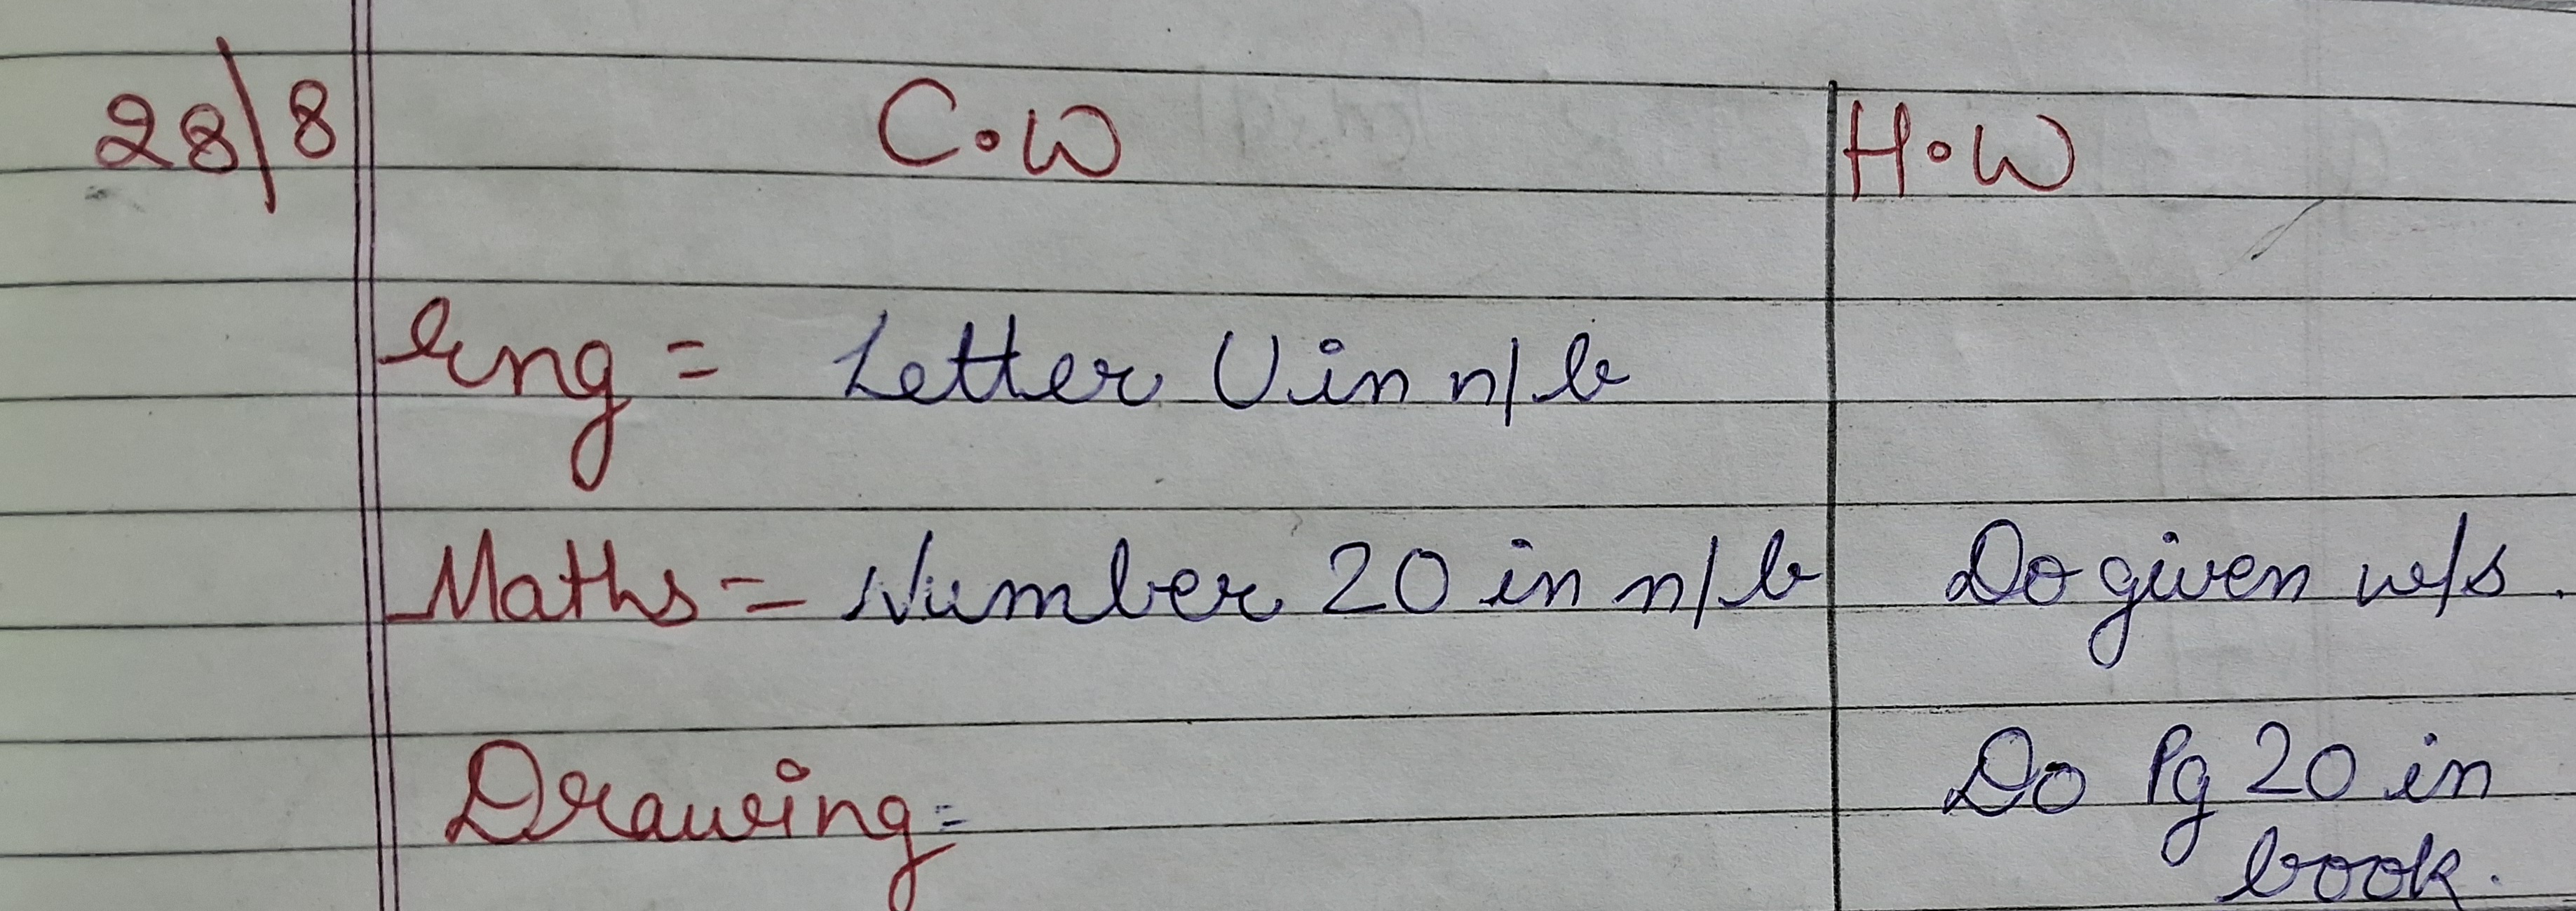 28\8 C.W H.W
Eng = Letter U in n/b
Maths = Number 20 in n/b Do given w/s.
Drawing = Do Pg 20 in
book.